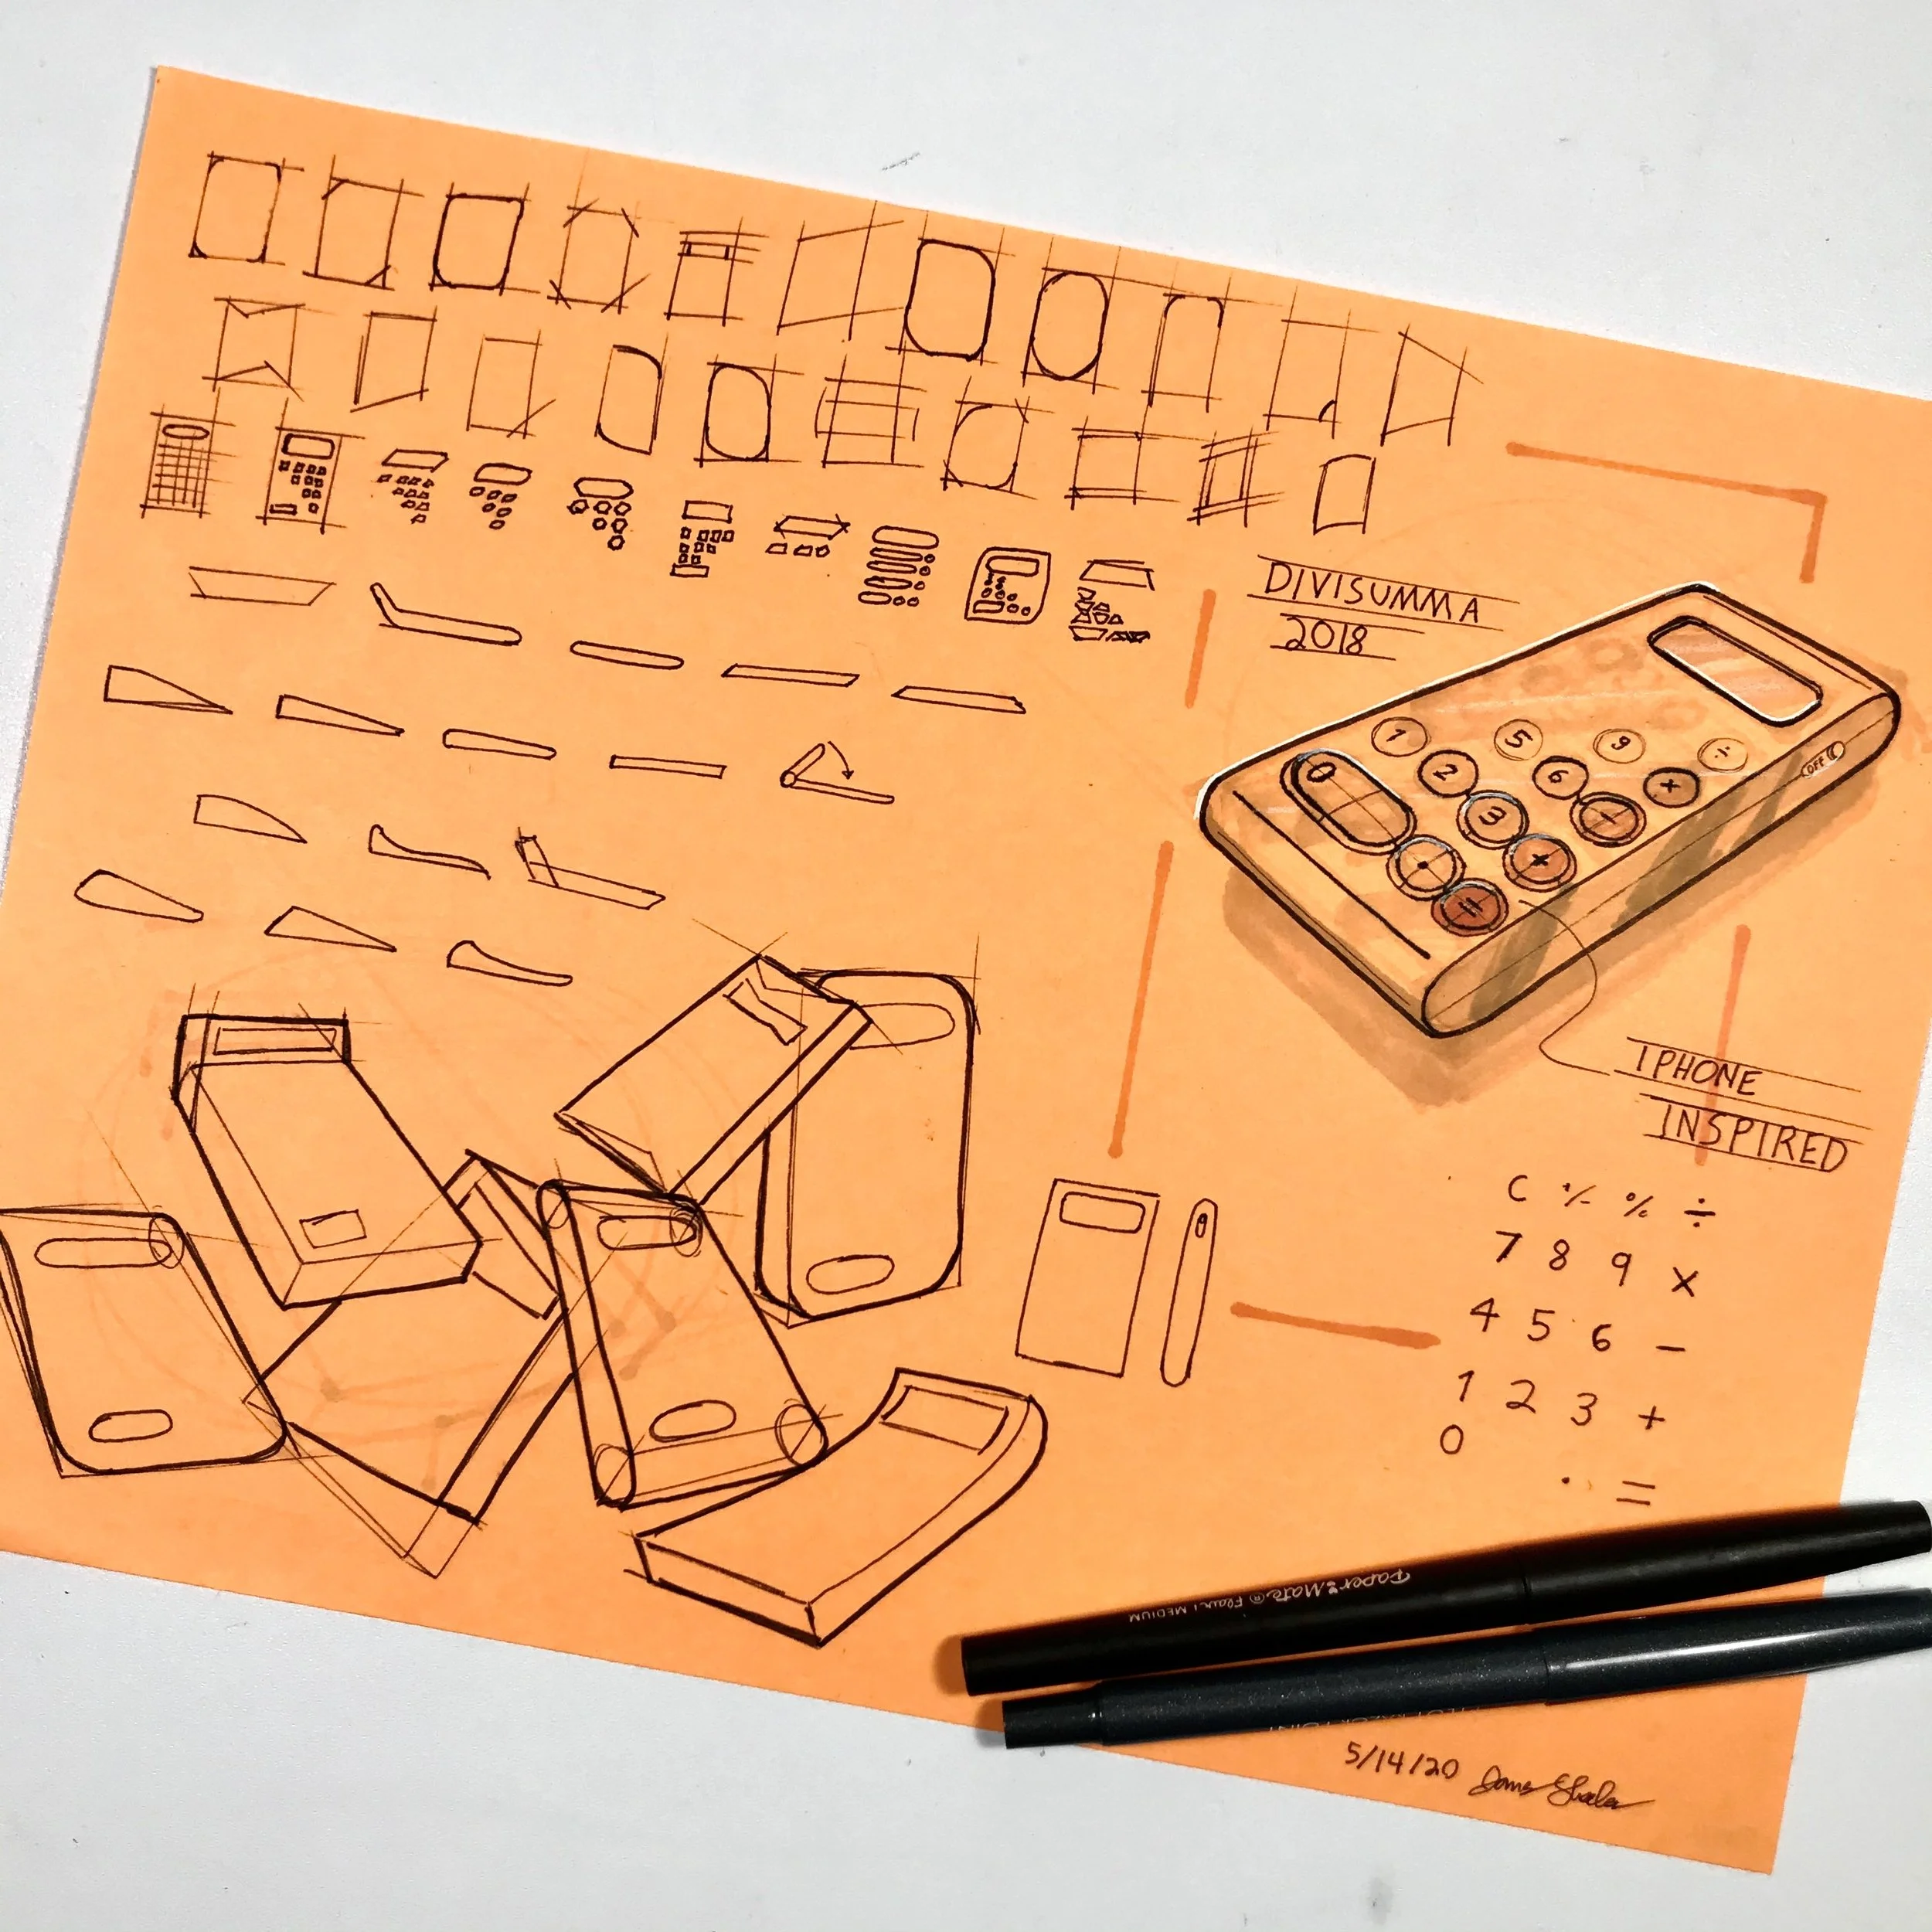 DIVISUMMA
2018
1 5 9 ÷
2 6 ×
0 3 -
• +
=
OFF
IPHONE
INSPIRED
C +/- % ÷
7 8 9 ×
4 5 6 -
1 2 3 +
0 . =
Paper:Mate® Flair! MEDIUM
5/14/20